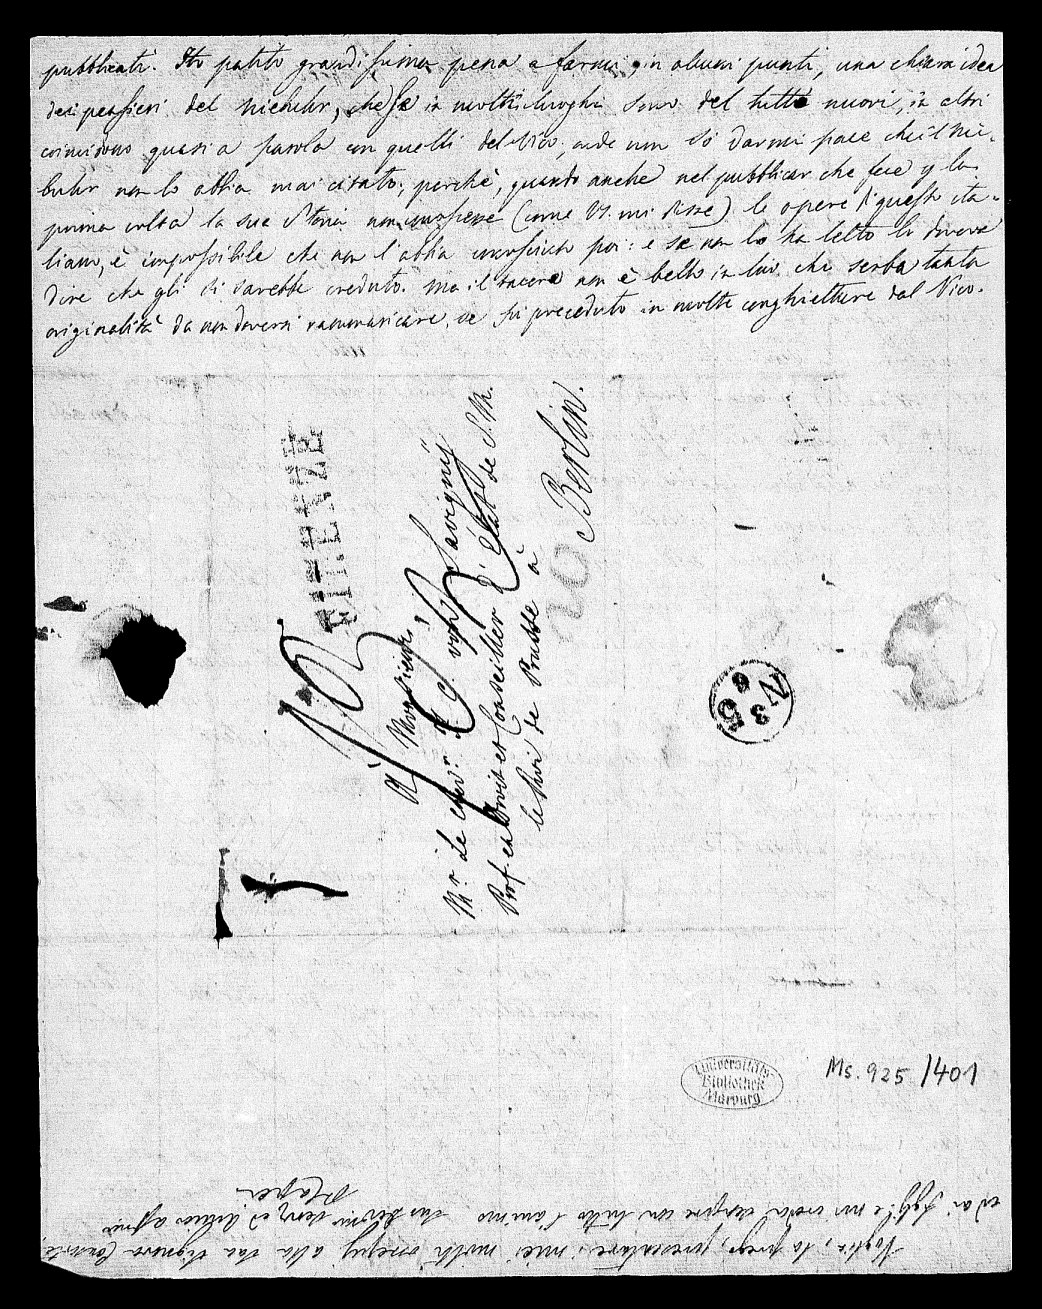 pubblicati. Ho patito grandissima pena a farmi, in alcuni punti, una chiara idea
dei pensieri del Niebuhr, che se in molti luoghi sono del tutto nuovi, in altri
coincidono quasi a parola con quelli del Vico; onde non so darmi pace che il Nie-
buhr non lo abbia mai citato; perchè, quando anche nel pubblicar che fece p la
prima volta la sua Storia non conoscesse (come VS. mi disse) le opere di questo ita-
liano, è impossibile che non l'abbia conosciuto poi: e se non lo ha letto lo doveva
dire che gli si sarebbe creduto. Ma il tacere non è bello in lui, che serba tanta
originalità da non doversi rammaricare, se fu preceduto in molte conghietture dal Vico.
FIRENZE
A Monsieur,
Mr. Le Chev.r F. C. von Savigny
Prof. en Droit et Conseiller d'Etat de S. M.
le Roi de Prusse à
Berlin.
20
N 3
5 6
Universitäts-
Bibliothek
Marburg
Ms. 925/401
Voglia, la prego, presentare i miei molti ossequj alla sua Signora Consorte,
ed ai figli: e mi creda sempre con tutto l'animo suo